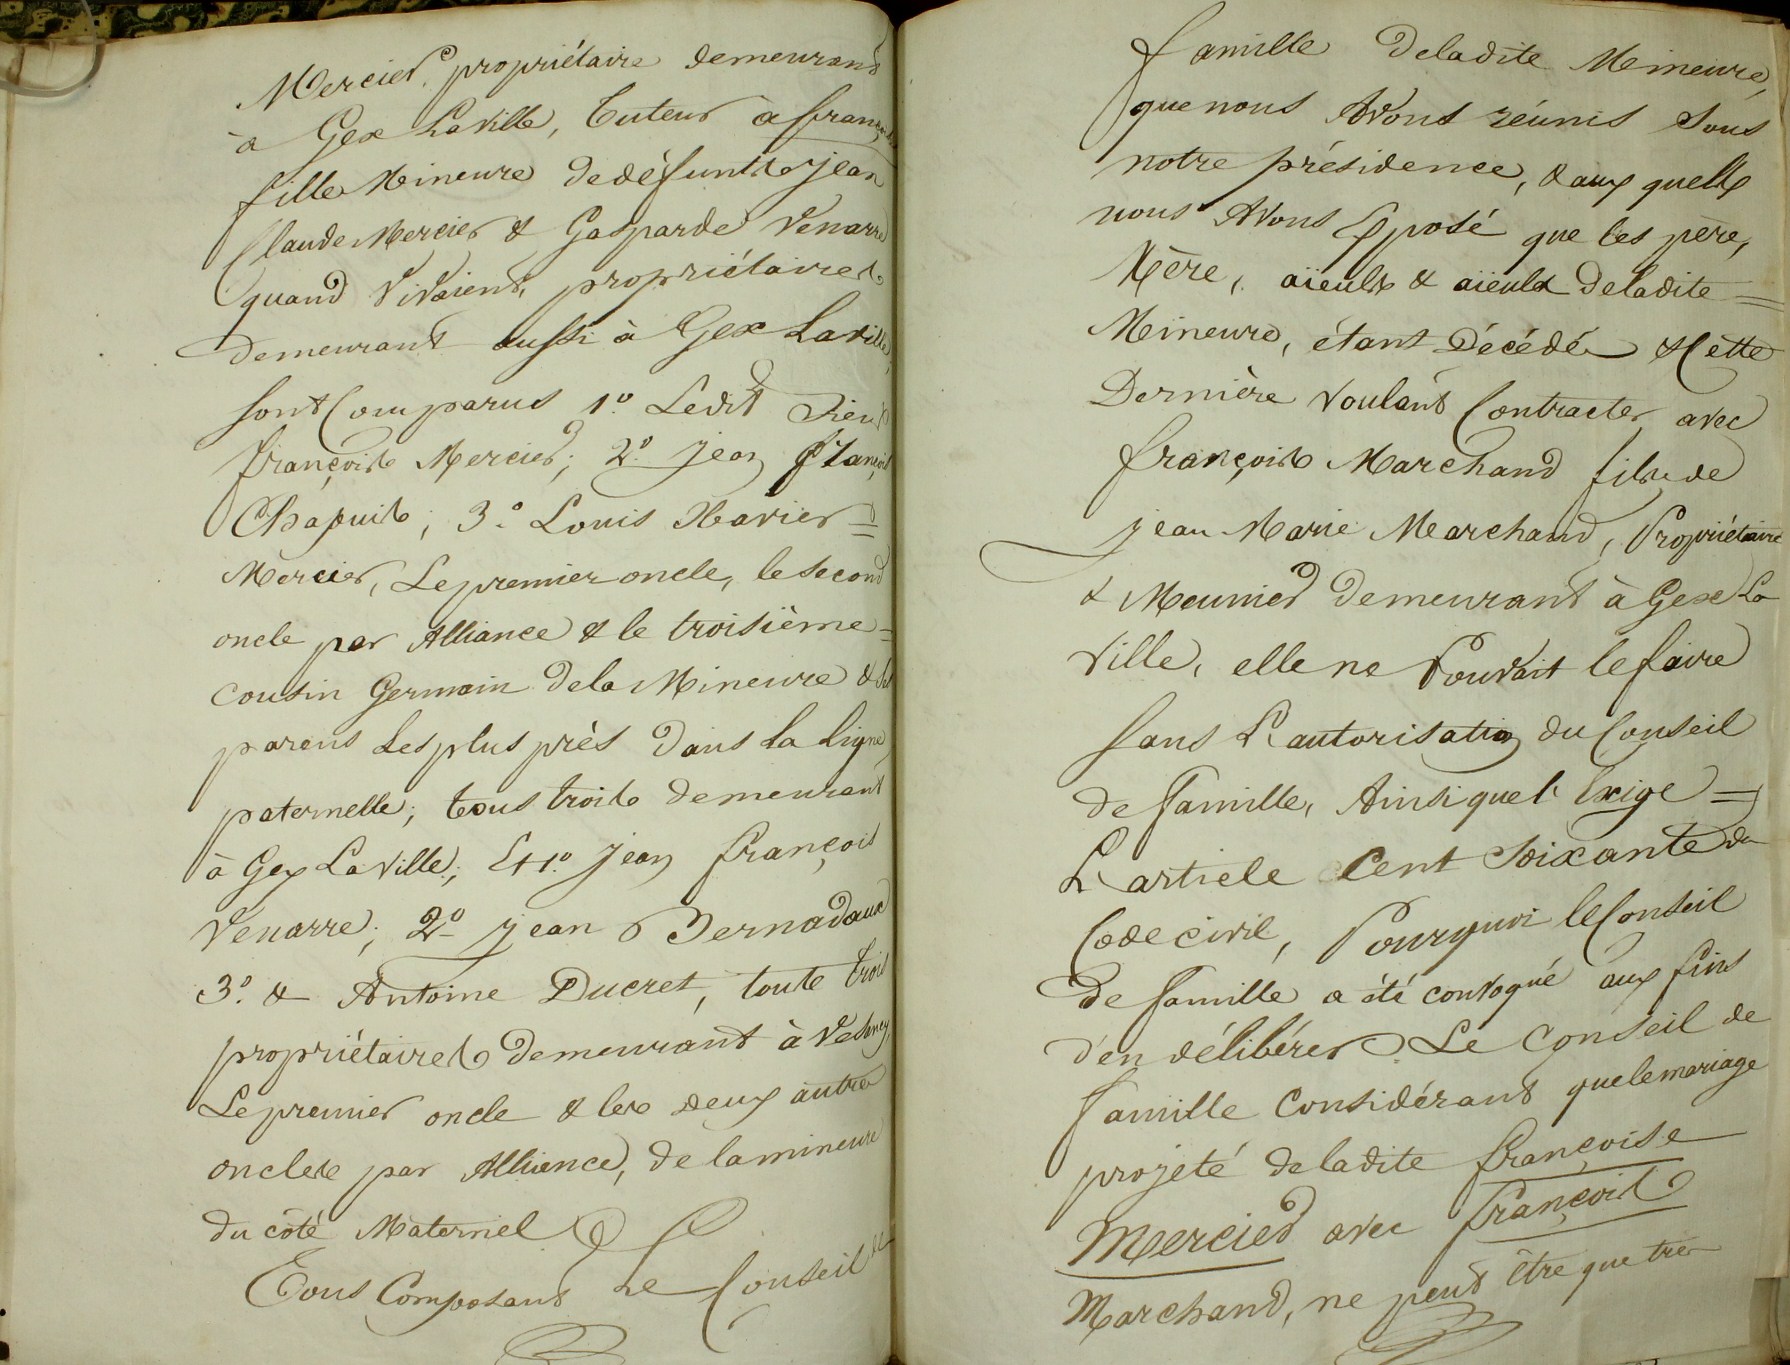 Mercier, propriétaire demeurant
à Gex La Ville, Tuteur a françoise
fille Mineure de défunts jean
Claude Mercier & Gasparde Venarre
quand vivoient, propriétaires
demeurant aussi à Gex La ville,
sont Comparus 1º Ledit Sieur
françois Mercier; 2º jean françois
Chapuis; 3º Louis Xavier =
Mercier, Le premier oncle, le second
oncle par Alliance & le troisième =
cousin Germain de la Mineure &
parens Les plus près dans la ligne
paternelle; tous trois demeurant
à Gex La Ville; Et 1º jean françois
Venarre; 2º jean Bernadaux
3º & Antoine Ducret, toute trois
propriétaires demeurant à Vesancy,
Le premier oncle & les deux autres
oncles par Alliance, de la mineure
du côté Maternel
Tous Composant Le Conseil de
famille de ladite Mineure,
que nous Avons réunis sous
notre présidence, & aux quells
nous Avons Exposé que les père,
Mère, aïeuls & aïeuls de ladite =
Mineure, étant Décédés & Cette
Dernière voulant Contracter avec
françois Marchand fils de
jean Marie Marchand, Propriétaire
& Meunier demeurant à Gex La
Ville, elle ne Pouvait le faire
sans L'autorisation du Conseil
de famille, Ainsi que l'Exige =
L'article Cent Soixante du
Code civil, Pourquoi le Conseil
De famille a été convoqué aux fins
d'en délibérer. Le Conseil de
famille Considérant que le mariage
projeté de ladite françoise
Mercier avec françois
Marchand, ne peut être que très